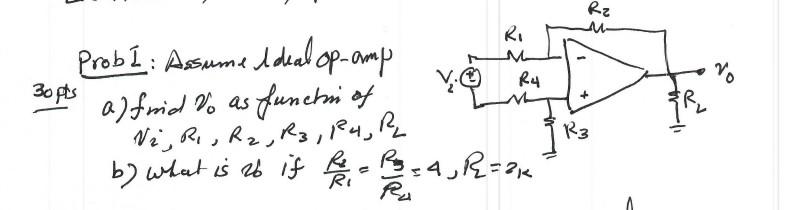 Prob I : Assume Ideal op-amp
30 pts
a) find Vo as function of
Vi, R1, R2, R3, R4, RL
b) what is Vo if R2/R1 = R3/R4 = 4, RL = 2K
R2
R1
Vi
R4
R3
RL
Vo